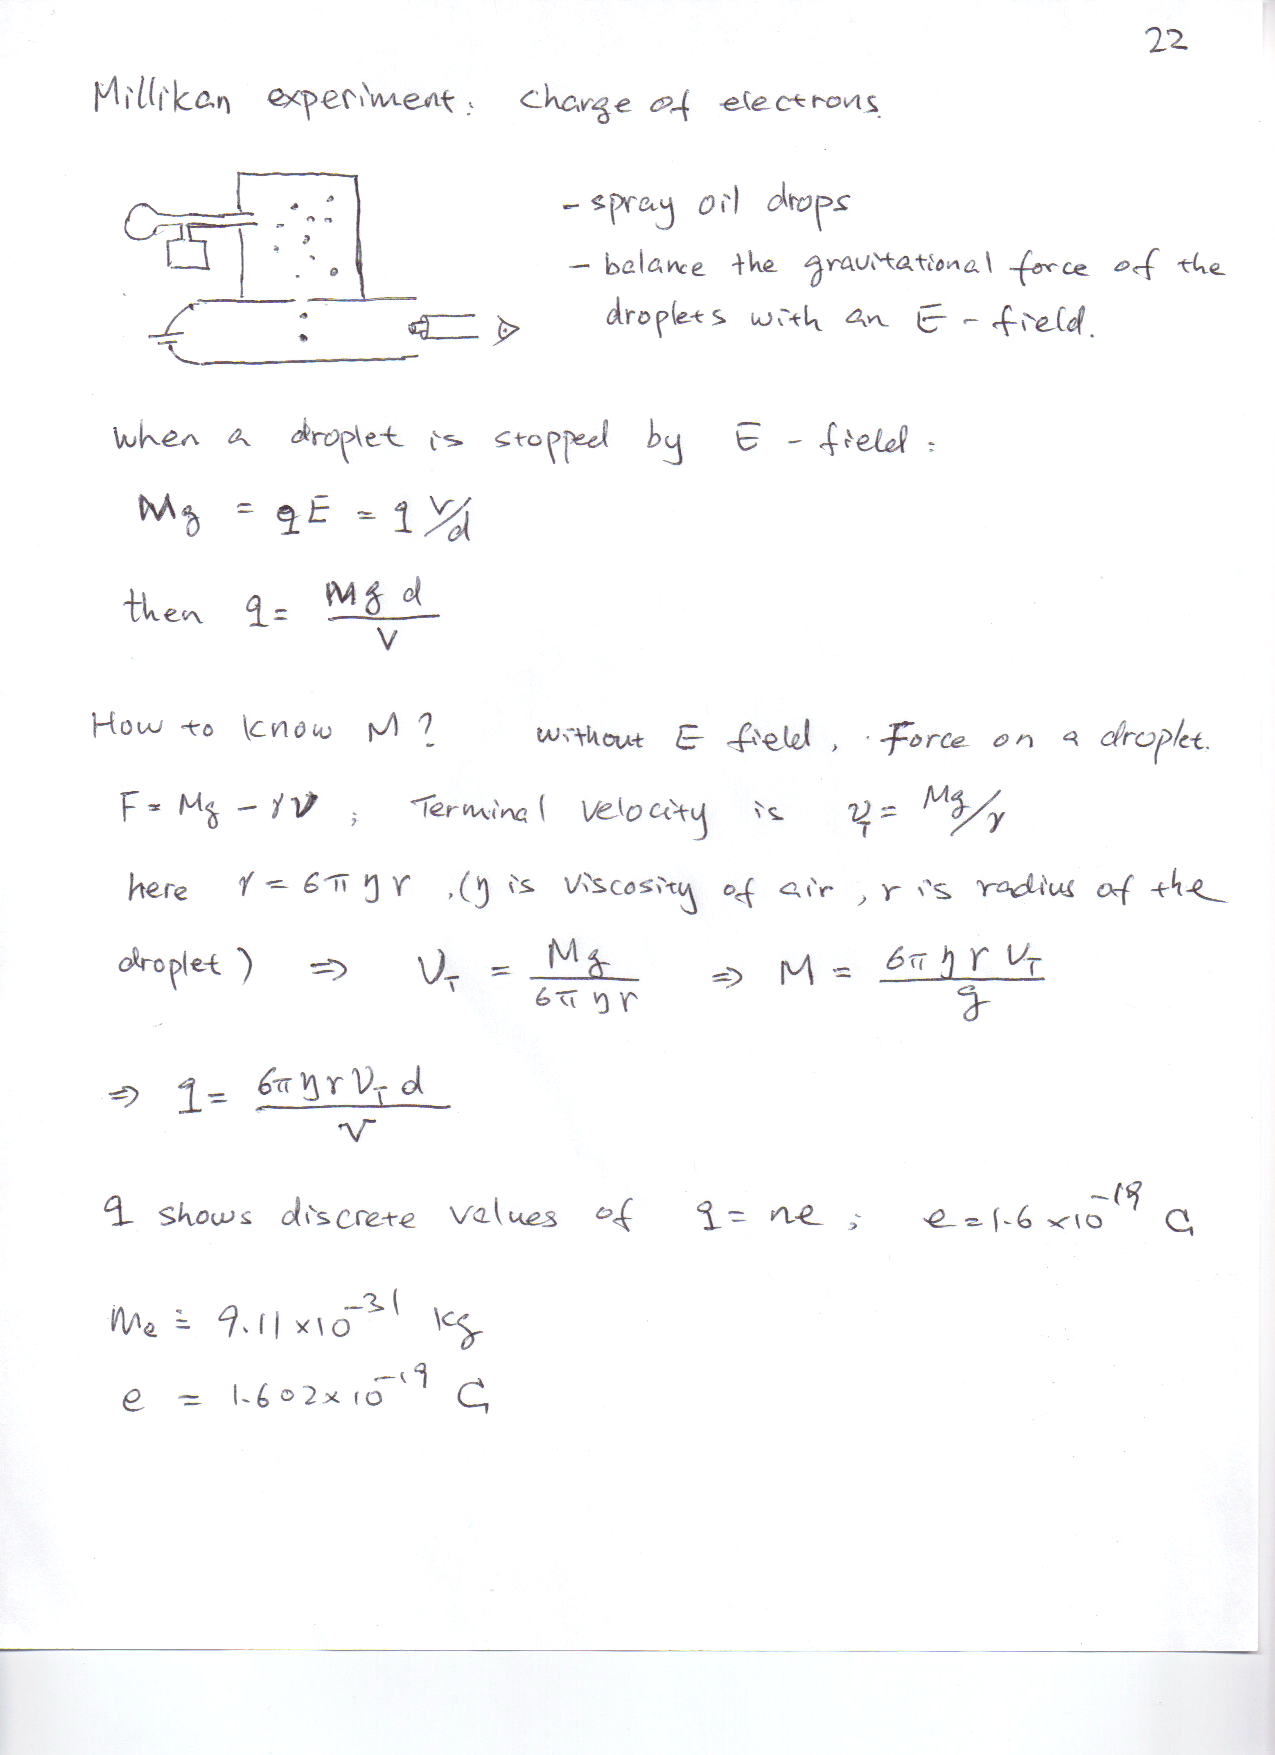 22
Millikan experiment: charge of electrons.
- spray oil drops
- balance the gravitational force of the
droplets with an E - field.
when a droplet is stopped by E - field:
Mg = qE = q V/d
then q = Mg d / V
How to know M? without E field, Force on a droplet.
F = Mg - γv ; Terminal velocity is v_T = Mg/γ
here γ = 6πηr, (η is viscosity of air, r is radius of the
droplet) ⇒ v_T = Mg / 6πηr ⇒ M = 6πηr v_T / g
⇒ q = 6πηr v_T d / V
q shows discrete values of q = ne ; e = 1.6 × 10^-19 C
me ≐ 9.11 × 10^-31 kg
e = 1.602 × 10^-19 C